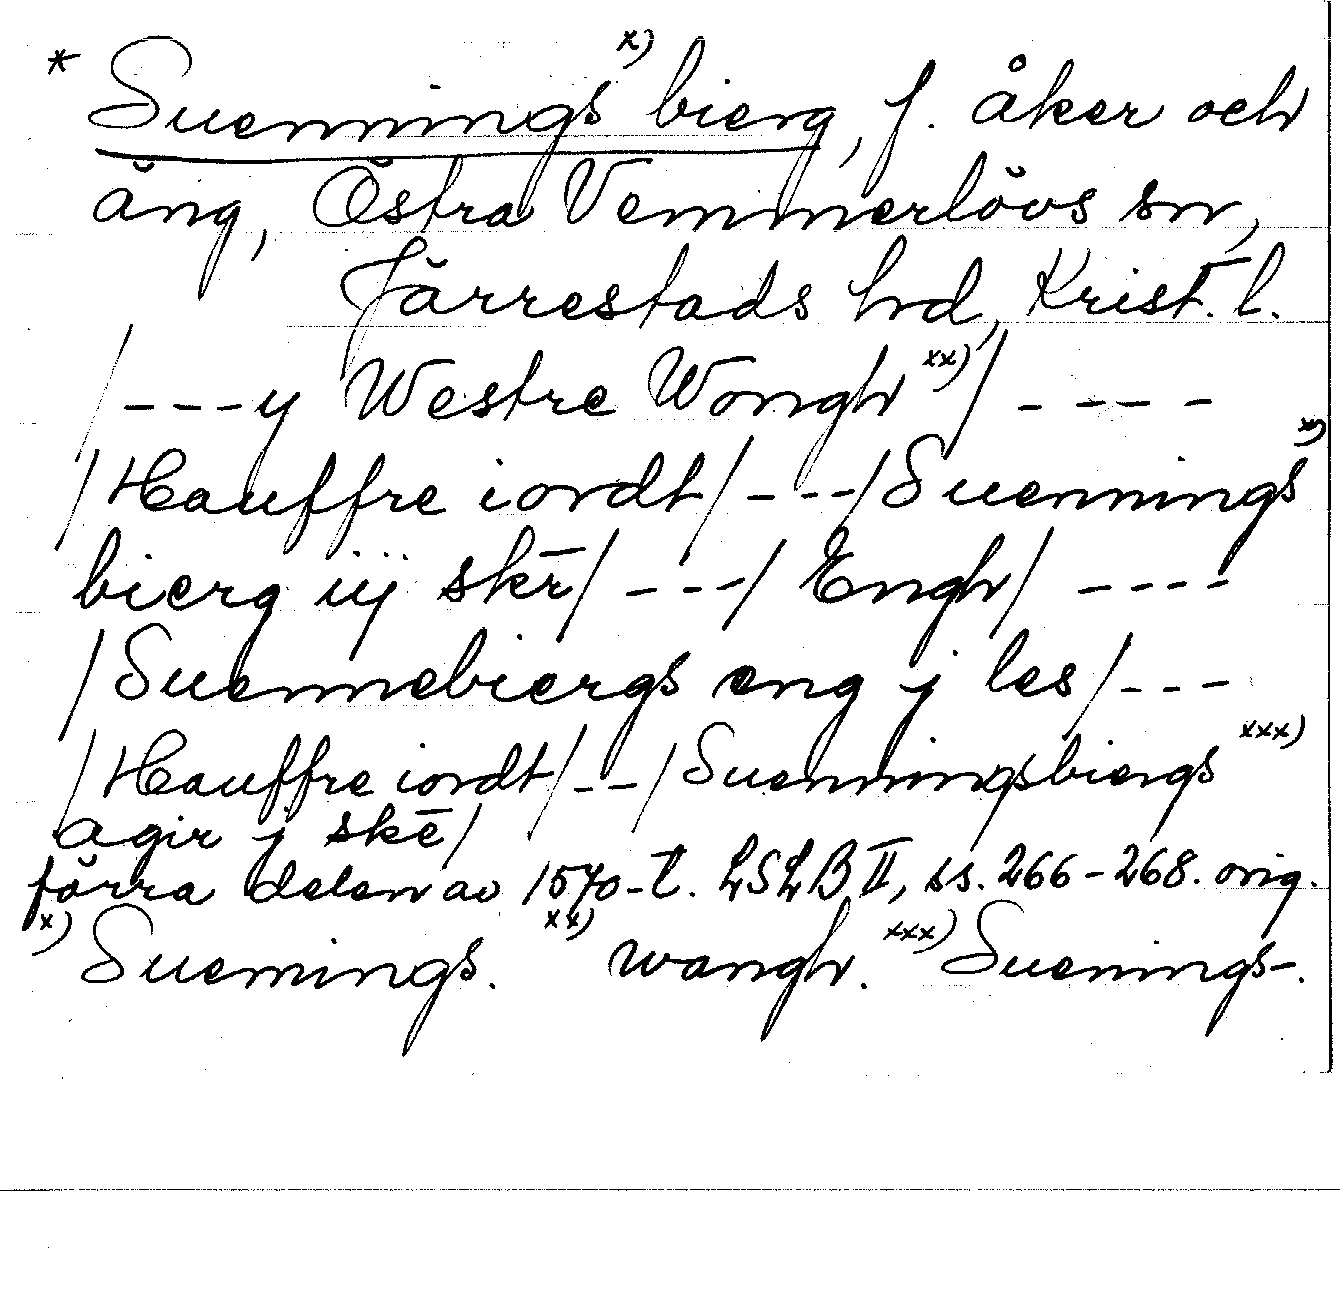 * Suennings x) bierg, f. åker och
äng, Östra Vemmerlövs sn,
Järrestads hd, Krist. l.
/---y Westre Wongh xx)/ ----
/Hauffre iordt/---/Suennings x)
bierg iij skr̄/---/Engh/ ----
/Suennebiergs eng j les/---
/Hauffre iordt/--/Suenningsbiergs xxx)
agir j skē/
förra delen av 1570-t. LSLB II, ss. 266-268. orig.
x) Suenings. xx) wangh. xxx) Suenings-.